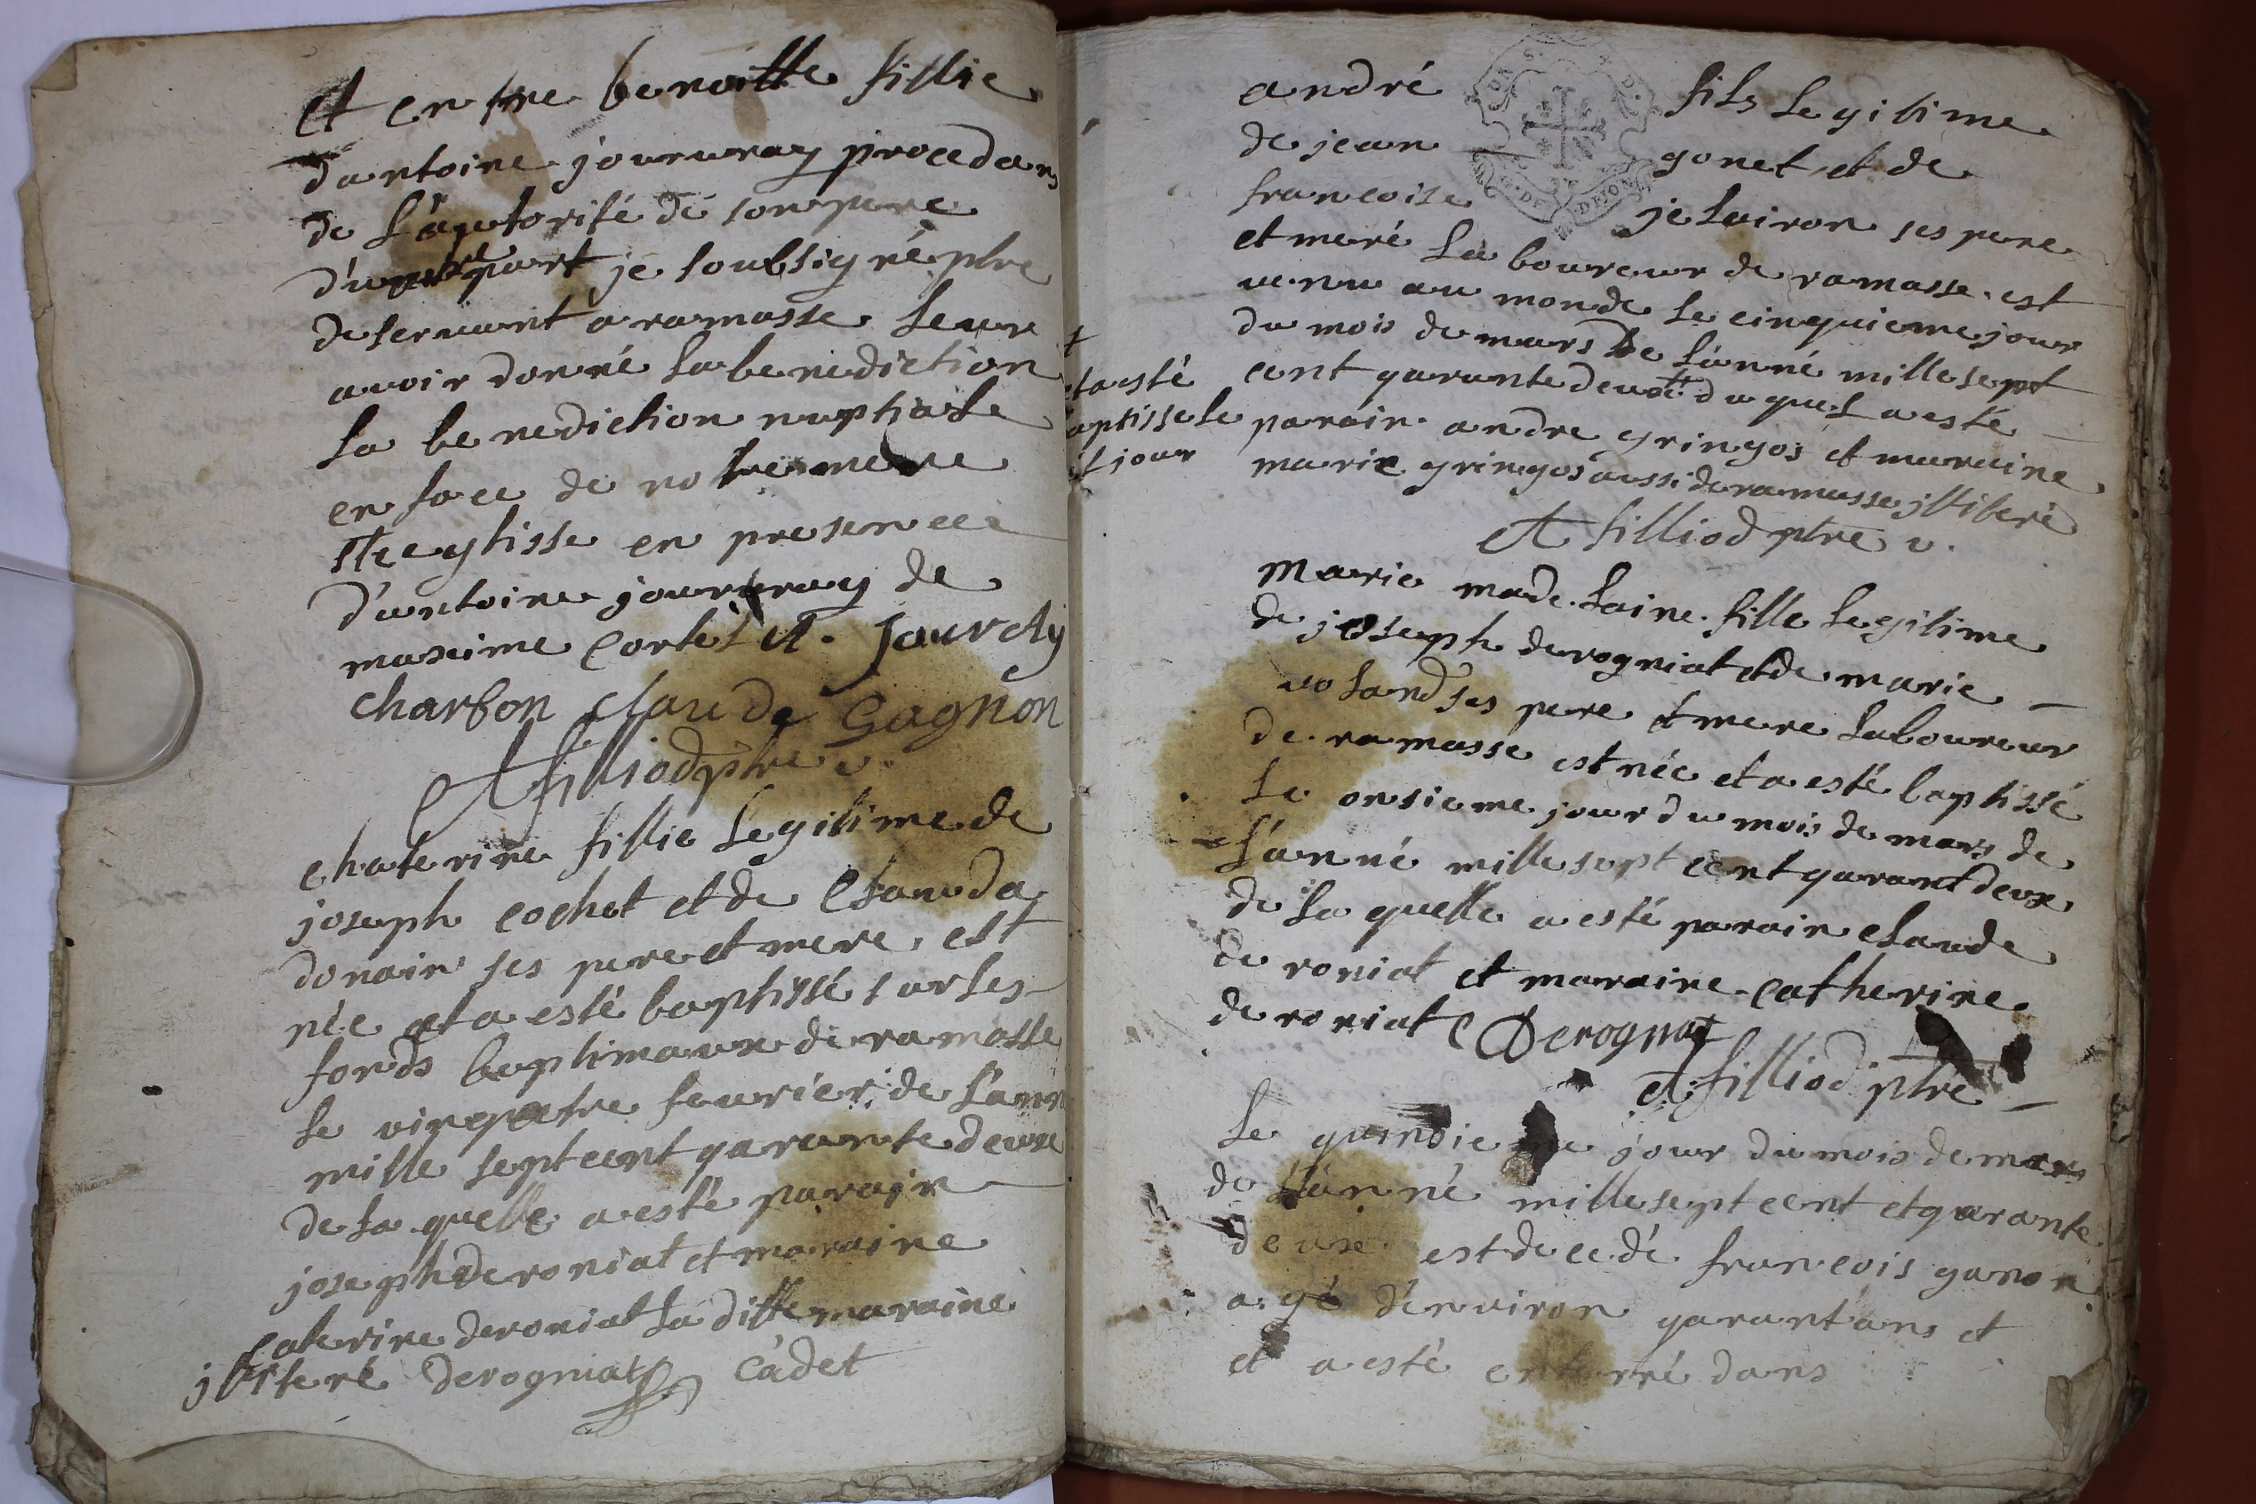 et entre benoitte fillie
d'antoine joururay procedans
de l'autorité de son pere
d'autre part je soubsigné ptre
deseruant a ramasse leur
auoir donné la benediction
la benediction nuptiale
en face de notre mere
ste eglisse en presence
d'antoine joururay de
maxime cortet A. Jaurdy
charbon claude Gagnon
A filliod ptre v.
chaterine fillie legitime de
joseph cochet et de clauda
donain ses pere et mere, est
née et a esté baptissé sur les
fonds baptimaux de ramasse
le vinqatre feurier de l'ann
mille sept cent qarante deux
de la quelle a esté parain
joseph deroniat et maraine
caterine deroniat la ditte maraine
jlliteré derogniat cadet
andré fils legitime
de jean gonet et de
francoise jelairon ses pere
et meré laboureur de ramasse, est
uenu au monde le cinquieme jour
du mois de mars de l'anné mille sept
cent qarante deux du quel a esté
parain andre gringos et maraine
marie gringos aussi de ramasse jlliberé
et a esté
baptisse le
jour
A filliod ptre v.
marie madelaine fille legitime
de joseph derogniat et de marie
voland ses pere et mere laboureur
de ramasse est née et a esté baptissé
le onsieme jour du mois de mars de
l'anné mille sept cent qarant deux
de la quelle a esté parain claude
deroniat et maraine catherine
deroniat C Derognat
A filliod ptre
le quinsieme jour du mois de mars
de l'anné mille sept cent et qarante
deux est decedé francois ganon
agé d'enuiron qarant ans et
et a esté enterré dans